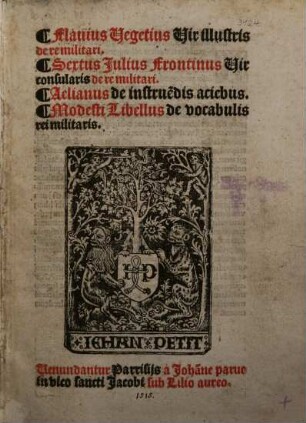 ¶ Flavius Vegetius Vir illustris
de re militari.
¶ Sextus Julius Frontinus Vir
consularis de re militari.
¶ Aelianus de instruēdis aciebus.
¶ Modesti Libellus de vocabulis
rei militaris.
I P
IEHAN PETIT
Venundantur Parrisijs a Johāne paruo
in vico sancti Jacobi sub Lilio aureo.
1515.